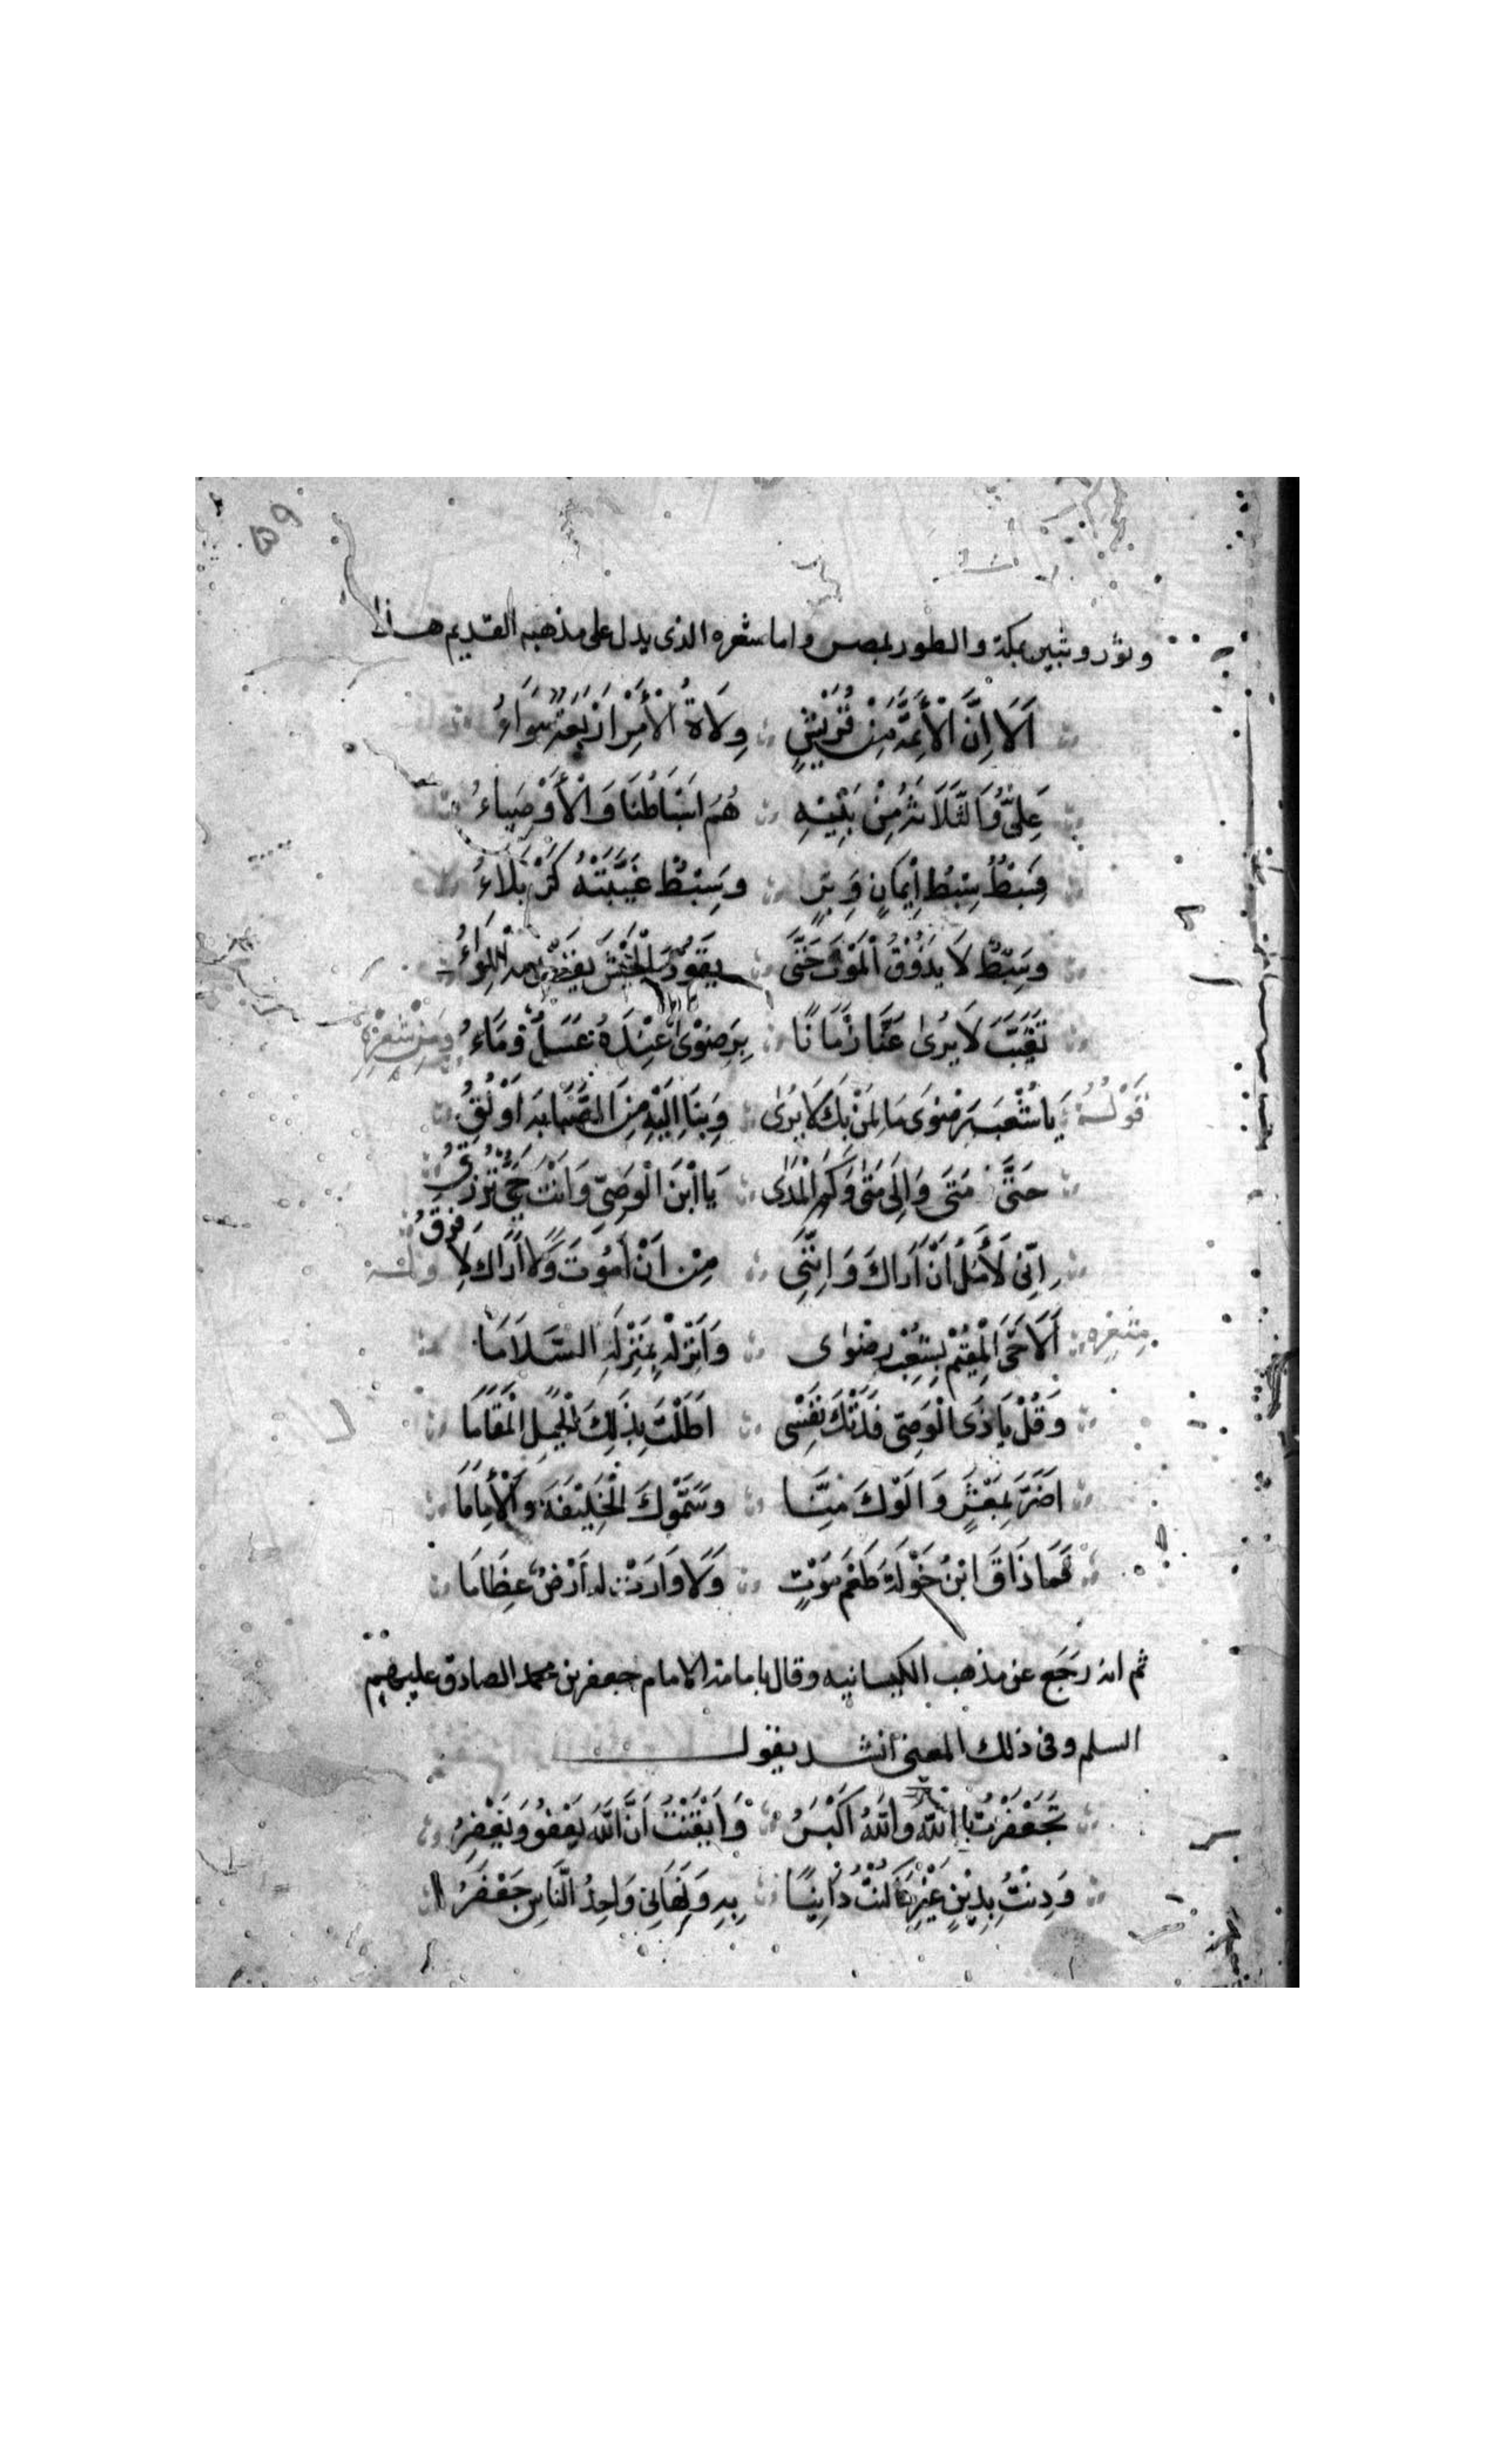 وثور وثبير بمكة والطور بمصر واما شعره الذى يدل على مذهبه القديم هذا
اَلَا اِنَّ الْاَئِمَّةَ مِنْ قُرَيْشٍ وِلَاةُ الْاَمْرِ اَرْبَعَةٌ سَوَاءُ
عَلِىٌّ وَالثَّلَاثَةُ مِنْ بَنِيْهِ هُمْ اَسْبَاطُنَا وَالْاَوْصِيَاءُ
فَسِبْطٌ سِبْطُ اِيْمَانٍ وَبِرٍّ وَسِبْطٌ غَيَّبَتْهُ كَرْبَلَاءُ
وَسِبْطٌ لَا يَذُوْقُ الْمَوْتَ حَتَّى يَقُوْدَ الْجَيْشَ يَقْدُمُهُ اللِّوَاءُ
تَغَيَّبَ لَا يُرٰى عَنَّا زَمَانًا بِرَضْوٰى عِنْدَهُ عَسَلٌ وَمَاءُ وَمِنْ شِعْرِهِ
قَوْلُهُ يَا شُعْبَ رَضْوَى مَا لِمَنْ بِكَ لَا يُرٰى وَبِنَا اِلَيْهِ مِنَ الصَّبَابَةِ اَوْلَقُ
حَتَّى مَتَى وَاِلَى مَتٰى وَكَمِ الْمَدٰى يَا ابْنَ الْوَصِىِّ وَاَنْتَ حَىٌّ تُرْزَقُ
اِنِّى لَأَمُلُ اَنْ اَرَاكَ وَاِنَّنِى مِنْ اَنْ اَمُوْتَ وَلَا اَرَاكَ لَاَفْرَقُ وله
من شعره اَلَا حَىِّ الْمُقِيْمَ بِشِعْبِ رضوٰى وَاَنْزِلْهُ بِمَنْزِلَةِ السَّلَامَا
وَقُلْ يَا ذَى الْوَصِى فَدَتْكَ نَفْسْى اَطَلْتَ بِذٰلِكَ الْجَبَلِ الْمَقَامَا
اَضَرَّ بِمَعْشَرٍ وَالَوْكَ مِنَّا وَسَمَّوْكَ الْخَلِيْفَةَ وَالْاِمَامَا
فَمَا ذَاقَ ابْنُ خَوْلَةَ طَعْمَ مَوْتٍ وَلَا وَارَتْ لَهُ اَرْضٌ عِظَامَا
ثم انه رَجَعَ عن مذهب الكيسانيه وقال بامامة الامام جعفر بن محمد الصادق عليهم
السلم وفى ذلك المعنى انشد يقول
تَجَعْفَرْتُ بِاللّٰهِ وَاللّٰهُ اَكْبَرُ وَاَيْقَنْتُ اَنَّ اللّٰهَ يَعْفُو وَيَغْفِرُ
وَدِنْتُ بِدِيْنٍ غَيْرِ مَا كُنْتُ دَايِنًا بِهِ وَنَهَانِى وَاحِدُ النَّاسِ جَعْفَرُ